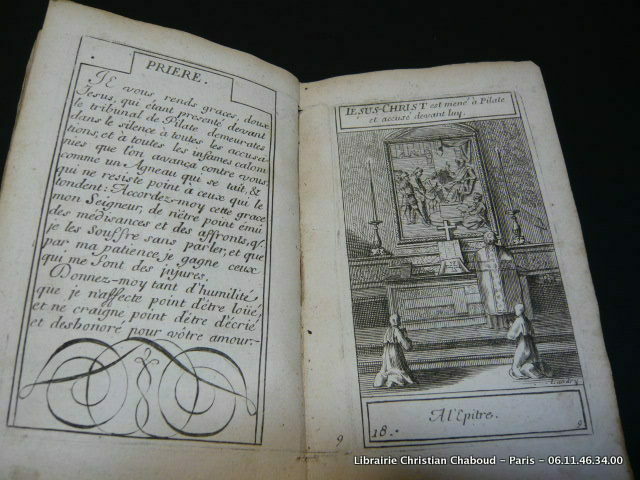 PRIERE.
JE vous rends graces, doux
Jesus, qui étant presenté devant
le tribunal de Pilate demeurâtes
dans le silence à toutes les accusa-
tions, et à toutes les infames calom
nies que l'on avança contre vous
comme un Agneau qui se tait, &
qui ne resiste point à ceux qui le
tondent: Accordez-moy cette grace
mon Seigneur, de n'être point émû
des médisances et des affronts, q.
je les souffre sans parler, et que
par ma patience je gagne ceux
qui me font des injures.
Donnez-moy tant d'humilité,
que je n'affecte point d'être loüé,
et ne craigne point d'être d'écrié
et deshonoré pour vôtre amour.-
9
IESUS-CHRIST est mené a Pilate
et accusé devant luy.
A l'Epitre.
18.
9
Librairie Christian Chaboud - Paris - 06.11.46.34.00